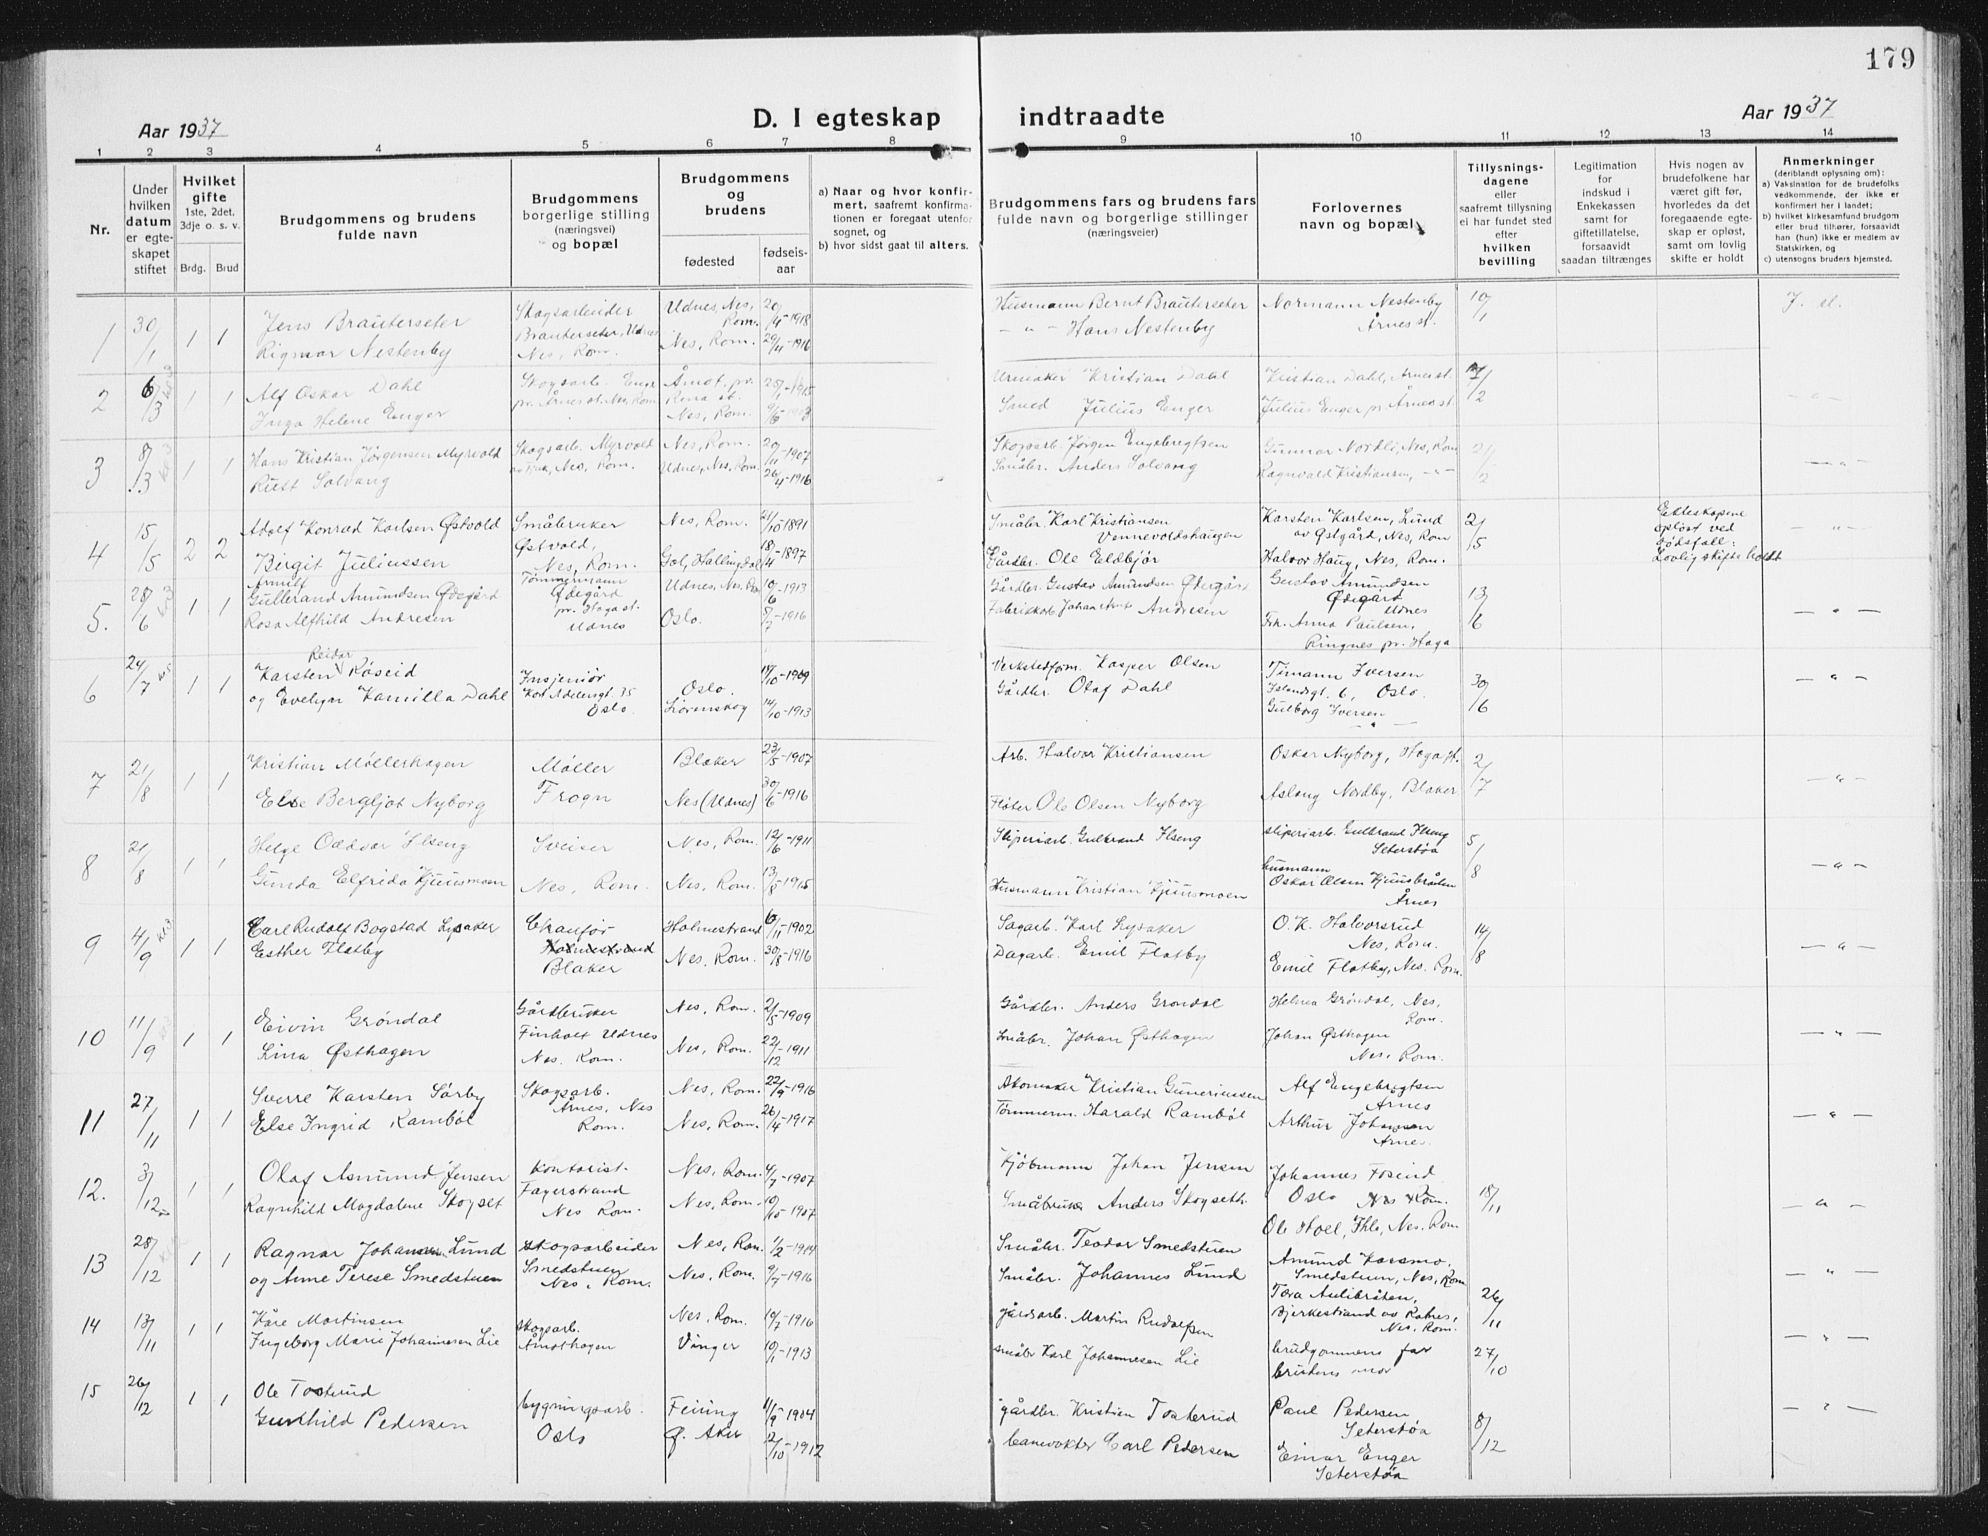 179
Aar 1937
D. I egteskap indtraadte
Aar 1937
1 2 3 4 5 6 7 8 9 10 11 12 13 14
Nr.
Under hvilken datum er egteskapet stiftet
Hvilket gifte 1ste, 2det, 3dje o. s. v.
Brdg. Brud
Brudgommens og brudens fulde navn
Brudgommens borgerlige stilling (næringsvei) og bopæl
Brudgommens og brudens
fødested
fødselsaar
a) Naar og hvor konfirmert, saafremt konfirmationen er foregaat utenfor sognet, og
b) hvor sidst gaat til alters.
Brudgommens fars og brudens fars fulde navn og borgerlige stillinger (næringsveier)
Forlovernes navn og bopæl
Tillysningsdagene eller saafremt tillysning ei har fundet sted efter hvilken bevilling
Legitimation for indskud i Enkekassen samt for giftetillatelse, forsaavidt saadan tiltrænges
Hvis nogen av brudefolkene har været gift før, hvorledes da det foregaaende egteskap er opløst, samt om lovlig skifte er holdt
Anmerkninger (deriblandt oplysning om):
a) Vaksination for de brudefolks vedkommende, der ikke er konfirmert her i landet;
b) hvilket kirkesamfund brudgom eller brud tilhører, forsaavidt han (hun) ikke er medlem av Statskirken, og
c) utensogns bruders hjemsted.
1 30/1 1 1 Jens Brauterseter Skogsarbeider Udnes, Nes, Rom. 20/4-1918 Husmann Bernt Brauterseter Normann Nestenby 10/1 J. el.
Rigmor Nestenby Brauterseter, Udnes Nes, Rom. Nes, Rom. 29/4-1916 -"- Hans Nestenby Årnes st.
2 6/3 1 1 Alf Oskar Dahl Skogsarb. Enger Åmot, pr. Rena st. 1915 Urmaker Kristian Dahl Kristian Dahl, Årnes st. /2 -"-
Inga Helene Enger pr. Årnes st. Nes, Rom Nes, Rom. Smed Julius Enger Julius Enger pr Årnes st.
3 8/3 1 1 Hans Kristian Jørgensen Myrvold Skogsarb. Myrvold Nes, Rom. 1907 Skogsarb. Jørgen Engebregtsen Gunnar Nordli, Nes, Rom 21/2 -"-
Rut Solvang Nes, Rom. Udnes, Nes, Rom. 26/4-1916 Småbr. Anders Solvang Ragnvald Kristiansen, -"-
4 15/5 2 2 Adolf Konrad Karlsen Østvold Småbruker Nes, Rom. 21/10-1891 Småbr. Karl Kristiansen Vennevoldshaugen Karsten Karlsen, Lund av Østgård, Nes, Rom 2/5 Ekteskapene opløst ved dødsfall: Lovlig skifte holdt -"-
Birgit Juliussen Østvold, Nes, Rom. Gol, Hallingdal 18/4-1897 Gårdbr. Ole Eldbjør Halvor Haug, Nes, Rom.
5. 28/6 1 1 Arnulf Gullerand Amundsen Ødegård Tømmermann Udnes, Nes, Rom 10/6-1913 Gårdbr. Gustav Amundsen Ødegård Gustav Amundsen Ødegård Udnes 13/6 -"-
Rosa Alfhild Andresen Ødegård pr. Haga st. Udnes Oslo. 8/7-1916 Fabrikkarb. Johan Andresen Frk. Anna Paulsen, Ringnes pr. Haga
6 24/7 1 1 Karsten Reidar Røseid Insjeniør Oslo. 10-1909 Verkstedform. Kasper Olsen Timann Iversen 30/6 -"-
og Evelyn Kamilla Dahl Kort Adelersgt. 35 Oslo. Lørenskog 14/10-1913 Gårdbr. Olaf Dahl Islandsgt. 6, Oslo. Gulborg Iversen -"-
7 21/8 1 1 Kristian Møllerhagen Møller Blaker 23/5-1907 Arb. Halvor Kristiansen Oskar Nyborg, Haga st. 2/7 -"-
Else Bergljot Nyborg Frogn Nes (Udnes) 30/6-1916 Fløter Ole Olsen Nyborg Aslaug Nordby, Blaker
8 21/8 1 1 Helge Oddvar Ilseng Sveiser Nes, Rom. 12/6-1911 Sliperiarb. Gulbrand Ilseng sliperiarb. Gulbrand Ilseng Seterstøa 5/8 -"-
Gunda Elfrida Kjuusmoen Nes, Rom. Nes, Rom. 13/5-1915 Husmann Kristian Kjuusmoen husmann Oskar Olsen Kjuusbråten Årnes
9 4/9 1 1 Carl Rudolf Bogstad Lysaker Chaufør Holmestrand 6/11-1902 Sagarb. Karl Lysaker O. K. Halvorsrud Nes, Rom. 14/8 -"-
Esther Flatby Holmestrand Blaker Nes. Rom. 30/8-1916 Dagarb. Emil Flatby Emil Flatby, Nes. Rom.
10 11/9 1 1 Eivin Grøndal Gårdbruker Nes, Rom. 2/5-1909 Gårdbr. Anders Grøndal Helma Grøndal, Nes, Rom. -"-
Lina Østhagen Finholt Udnes Nes. Rom. Nes, Rom. 22/12-1911 Småbr. Johan Østhagen Johan Østhagen Nes, Rom.
11 27/11 1 1 Sverre Karsten Sørby Skogsarb. Nes, Rom. 22/9-1916 Skomaker Kristian Guneriussen Alf Engebregtsen Årnes -"-
Else Ingrid Rambøl Årnes, Nes Rom. Nes, Rom. 26/4-1917 Tømmerm. Harald Rambøl Arthur Johansen Årnes
12. 3/12 1 1 Olaf Asmund Jensen Kontorist Nes, Rom 4/7-1907 Kjøbmann Johan Jensen Johannes Foseid Oslo 18/11 -"-
Ragnhild Magdalene Skogset Fagerstrand Nes Rom. Nes, Rom. 10/10-1907 Småbruker Anders Skogseth. Ole Hoel, Ihle, Nes. Rom
13 28/12 1 1 Ragnar Johansen Lund skogsarbeider Nes, Rom. 11/2-1914 Småbr. Teodor Smedstuen Amund Korsmo. Smedstuen, Nes, Rom -"-
og Anne Terese Smedstuen Smedstuen Nes, Rom. Nes, Rom. 9/7-1916 Småbr. Johannes Lund Tora Aulibråten, Bjerkestrand av Rotnes, Nes, Rom. 26/11
14 13/11 1 1 Kåre Martinsen skogsarb. Nes, Rom. /7-1916 gårdsarb. Martin Rudolfsen brudgommens far 27/10 -"-
Ingeborg Marie Johannesen Lie Åmothagen Vinger 10/1-1913 småbr Karl Johannesen Lie brudens mor
15 26/12 1 1 Ole Tosterud bygningsarb. Feiring 11/9-1904 gårdbr. Kristian Tosterud Paul Pedersen Seterstøa 8/12 -"-
Gunhild Pedersen Oslo Ø. Aker 2/10-1912 banevokter Carl Pedersen Einar Enger Seterstøa